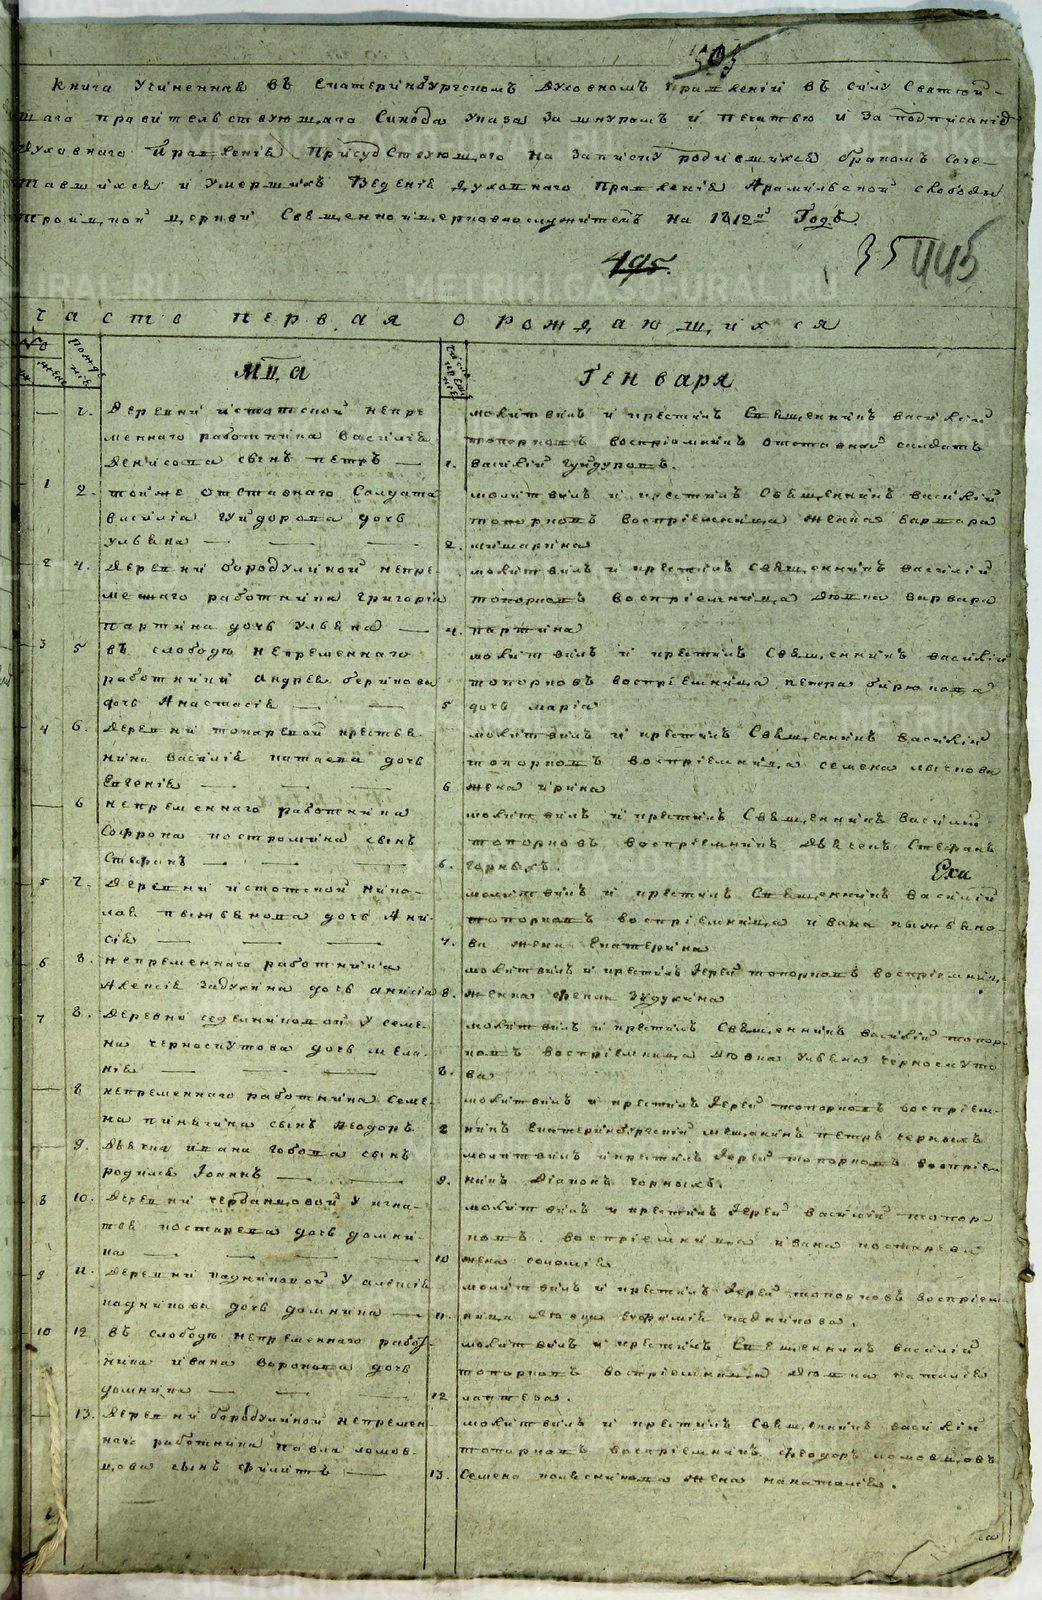 505
Книга Учиненная въ Екатеринбургскомъ Духовномъ Правленiи въ силу Святей-
шаго правительствующаго Синода Указа За шнуромъ и Печатью и За подписанiе
Духовнаго Правленiя Присудствующаго На Записку родившихся бракомъ Соче-
тавшихся и Умершихъ Веденiя Духовнаго Правленiя Арамильской слободы
Троицкой церкви Священноицерковнослужителемъ На 1812й Годъ.
495.
35 445
Часть первая о рождающихся
Мца Генваря
1. Деревни истотской непре-
менного работника Василiя
Денисова сынъ петръ
молитвилъ и крестилъ Священникъ василiй
топорковъ воспрiемникъ отставной салдатъ
1. василiй гуйдуровъ.
1 2. тойже отставнаго Солдата
василiа гуйдорова дочь
улияна
молитвилъ и крестилъ Священникъ василiй
топорковъ воспрiемница женка варвара
2. мишарина
2 4. Деревни бородулиной непре-
меннаго работника григорiя
партина дочь улияна
молитвилъ и крестилъ священникъ василiй
топорковъ воспрiемница девка варвара
4. партина
3 5 въ слободе непременнаго
работника андрея берикова
дочь Анастасiя
молитвилъ и крестилъ Священникъ василiй
топорковъ воспрiемница петра бирюкова
5 дочь марiа
4 6. Деревни токаревой крестья-
нина василiя катаева дочь
Евгенiя
молитвилъ и крестилъ Священникъ василiй
топорковъ воспрiемница семена лыскова
6 жена ирина
6 непременнаго работника
Софрона костромина сынъ
Стефанъ
молитвилъ и крестилъ Священникъ василiй
топорковъ воспрiемникъ Дьячекъ Стефанъ
6. Черныхъ.
Еха
5 7. Деревни истотской нико-
лая
сiя
молитвилъ и крестилъ Священникъ василiй
топорковъ воспрiемница ивана
7. ва жена Екатерина
6 8. непременнаго работника
Алексiя Зидукина дочь анисiа
молитвилъ и крестилъ Iерей топорковъ воспрiемница
8. женка Зудукина
7 8. Деревни седелниковой У семе-
на черноскутова дочь мела-
нiя
молитвилъ и крестилъ Священникъ василiй топор-
ковъ воспрiемница девка улияна черноскуто-
8. ва
8 непременнаго работника Семе-
на пинягина сынъ Феодоръ
молитвилъ и крестилъ Iерей топорковъ воспрiем-
8 никъ Екатеринбургскiй мещанинъ петръ черныхъ
9. Девки ивана гобова сынъ
родился Iоаннъ
молитвилъ и крестилъ Iерей топорковъ воспрiем-
9. никъ Дiаконъ Чорныхъ.
8 10. Деревни чербанцовой У игна-
тiя костарева дочь домни-
ка
молитвилъ и крестилъ Iерей василiй топор-
ковъ. воспрiемница ивана костарева
10 жена соломiя
9 11. Деревни кадниковой У алексiя
кадникова дочь домника
молитвилъ и крестилъ Iерей топорковъ воспрiем-
11. ница девица Еуфимiя кадникова.
10 12. въ слободе непременнаго работ-
ника ивана воронова дочь
домника
молитвилъ и крестилъ Священникъ василiй
топорковъ воспрiемница девка наталiя
12 лаптева.
13. Деревни бородулиной непремен-
наго работника павла ломов-
цова сынъ Филипъ
молитвилъ и крестилъ Священникъ василiй
топорковъ воспрiемникъ Феодоръ ломовцовъ
13. Семена колясникова жена наталiя.
ла
METRIKI.GASO-URAL.RU